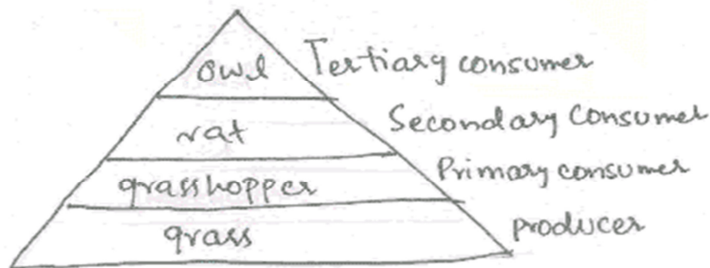 owl Tertiary consumer
rat Secondary Consumer
grasshopper Primary consumer
grass producer